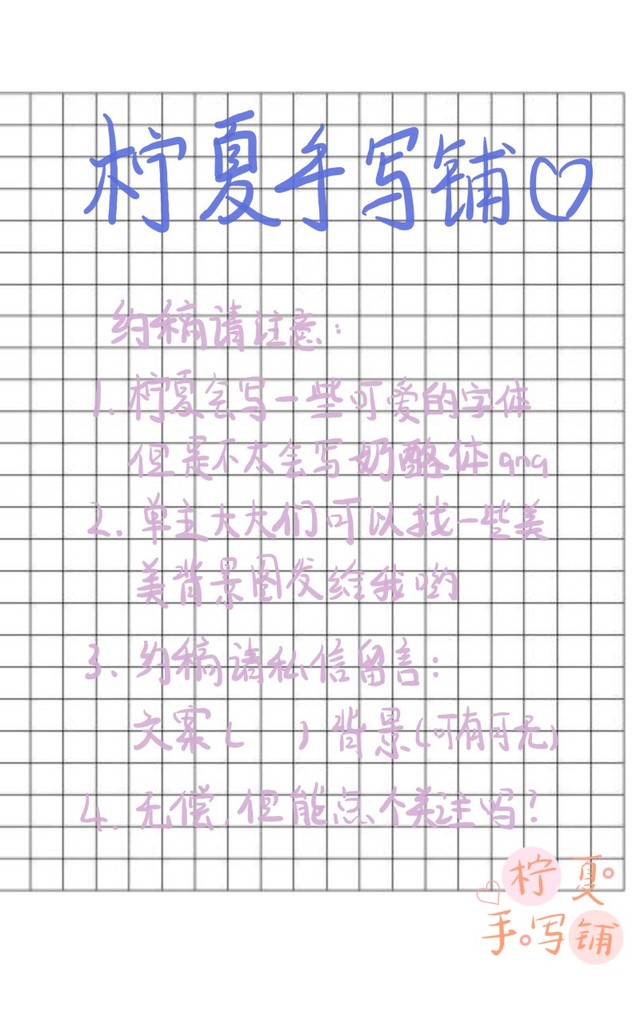 柠夏手写铺♡
约稿请注意：
1. 柠夏会写一些可爱的字体
但是不太会写奶酪体qnq
2. 单主大大们可以找一些美
美背景图发给我哟
3、约稿请私信留言：
文案(    ) 背景(可有可无)
4、无偿，但能点个关注吗？
柠夏。
手。写铺